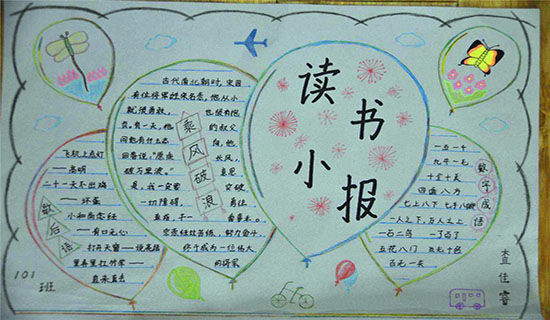 读书
小报
乘风破浪
古代南北朝时,宋国
有位将军姓宗名悫,他从小
就很勇敢, 也很有抱
负,有一天,他 的叔父
问他有什么志 向,他
回答说:“愿乘 长风,
破万里浪。” 意思
是,我一定要 突破
一切障碍, 勇往
直前,干一 番事业。
宗悫经过苦练,努力奋斗,
终于成为一位伟大
的将军
歇后语
飞机上点灯
——高明
二十一天不出鸡
——坏蛋
小和尚念经
——有口无心
打开天窗——说亮话
里弄里扛竹竿——
直来直去
数字成语
一五一十
九牛一毛
十全十美
四面八方
七上八下 七手八脚
一人之下,万人之上
一石二鸟 一了百了
五花八门 五光十色
百无一失
101
班
查佳睿